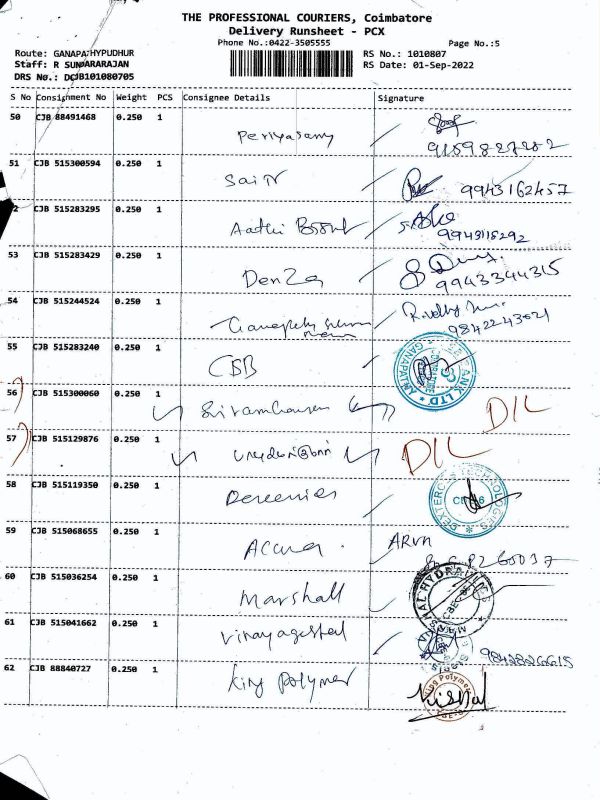 THE PROFESSIONAL COURIERS, Coimbatore
Delivery Runsheet - PCX
Phone No.:0422-3505555 Page No.:5
Route: GANAPATHYPUDHUR RS No.: 1010807
Staff: R SUNDARARAJAN RS Date: 01-Sep-2022
DRS No.: DCJB101080705
S No Consignment No Weight PCS Consignee Details Signature
50 CJB 88491468 0.250 1
Periyasamy
9159827252
51 CJB 515300594 0.250 1
Sai Tr 9943162457
CJB 515283295 0.250 1
Aathi
9943118292
53 CJB 515283429 0.250 1
DenZa 9943344315
54 CJB 515244524 0.250 1
9842243021
55 CJB 515283240 0.250 1
CSB
56 CJB 515300060 0.250 1
D/L
57 CJB 515129876 0.250 1
D/L
58 CJB 515119350 0.250 1
DEXTEROUS TECHNOLOGIES
59 CJB 515068655 0.250 1
Accura ARUN
60 CJB 515036254 0.250 1
Marshall
61 CJB 515041662 0.250 1
Vinayaga Steel
9842826615
62 CJB 88840727 0.250 1
King Polymer
King Polymer
Vishal